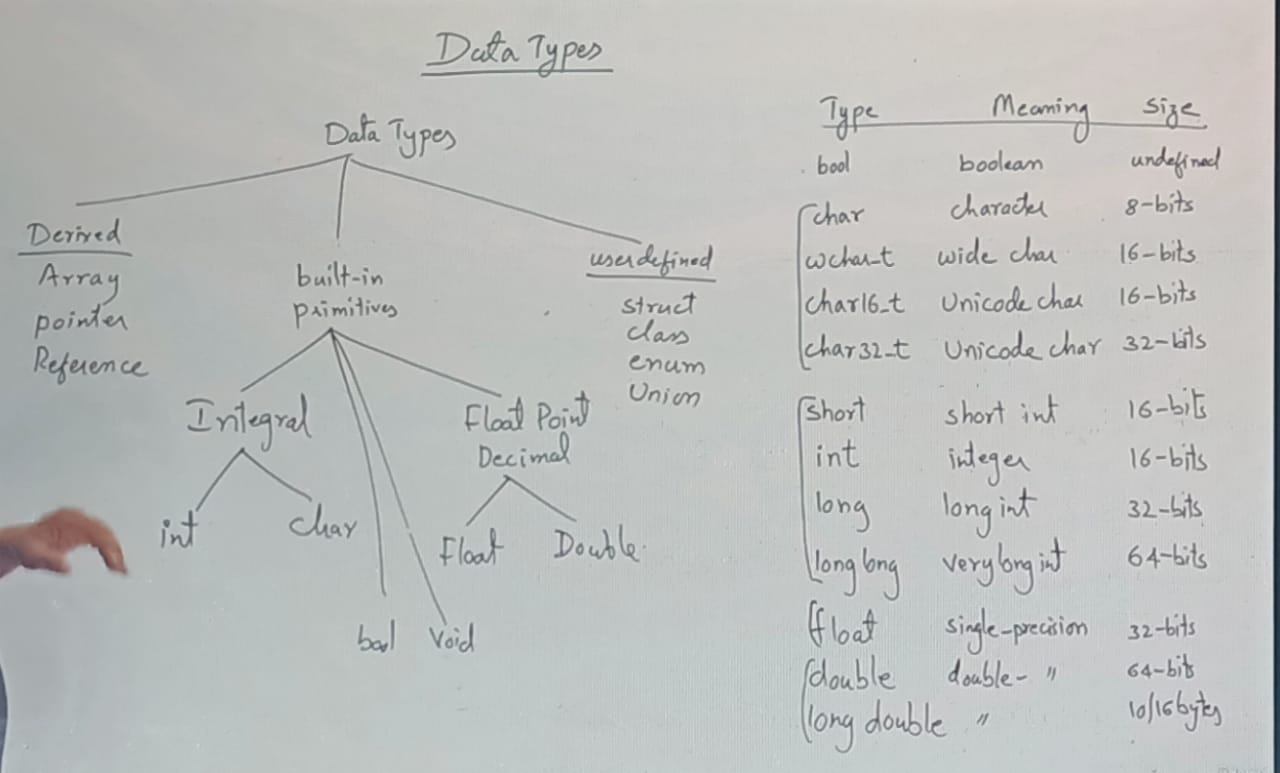 Data Types
Data Types
Derived
Array
pointer
Reference
built-in
primitives
userdefined
struct
class
enum
Union
Integral
int
char
Float Point
Decimal
Float
Double
bool
void
Type Meaning Size
bool boolean undefined
char character 8-bits
wchar_t wide char 16-bits
char16_t Unicode char 16-bits
char32_t Unicode char 32-bits
short short int 16-bits
int integer 16-bits
long long int 32-bits
long long very long int 64-bits
float single-precision 32-bits
double double- " 64-bits
long double " 10/16bytes